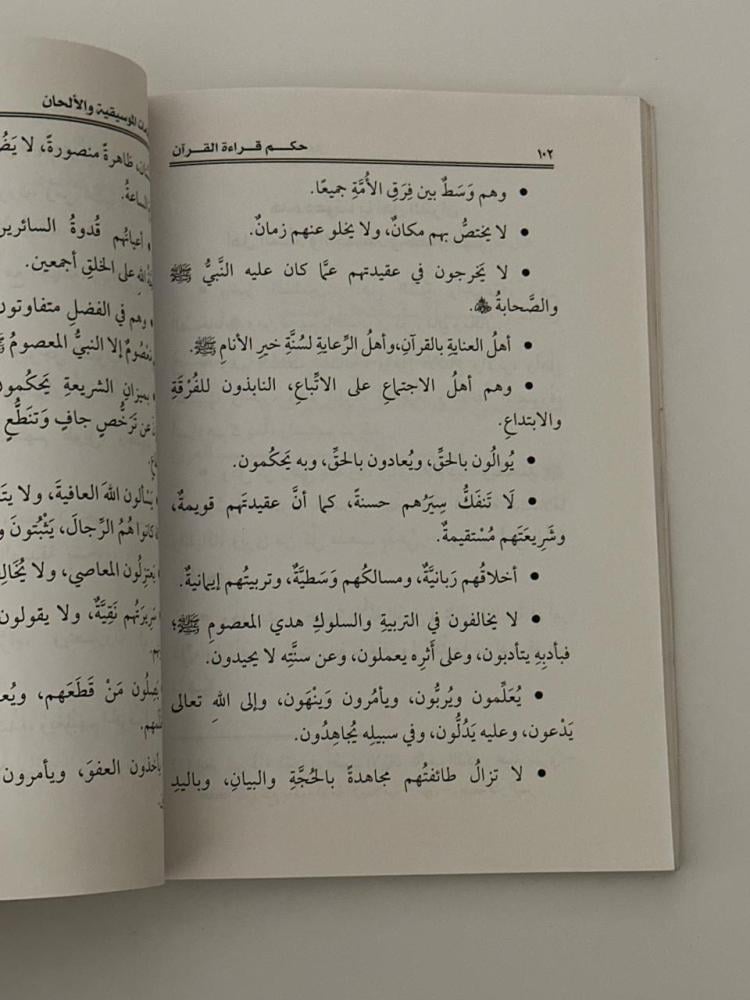 ١٠٢
حكم قراءة القرآن
• وهم وَسَطٌ بين فِرَقِ الأُمَّةِ جميعًا.
• لا يختصُّ بهم مكانٌ، ولا يخلو عنهم زمانٌ.
• لا يَخرجون في عقيدتهم عمَّا كان عليه النَّبيُّ ﷺ
والصَّحابةُ.
• أهلُ العنايةِ بالقرآنِ، وأهلُ الرِّعايةِ لسُنَّةِ خيرِ الأنامِ ﷺ.
• وهم أهلُ الاجتماعِ على الاتِّباعِ، النابذون للفُرْقَةِ
والابتداعِ.
• يُوالُون بالحقِّ، ويُعادون بالحقِّ، وبه يَحكُمون.
• لَا تَنفَكُّ سِيَرُهم حسنةً، كما أنَّ عقيدتَهم قويمةٌ،
وشَرِيعَتَهم مُسْتقيمةٌ.
• أخلاقُهم رَبانيَّةٌ، ومسالكُهم وَسَطيَّةٌ، وتربيتُهم إيمانيةٌ.
• لا يخالفون في التربيةِ والسلوكِ هديَ المعصومِ ﷺ؛
فبأدبِهِ يتأدبون، وعلى أثَرِه يعملون، وعن سنَّتِه لا يحيدون.
• يُعَلِّمون ويُربُّون، ويأمُرون وَيَنْهَون، وإلى اللهِ تعالى
يَدْعون، وعليه يَدُلُّون، وفي سبيلِه يُجاهِدُون.
• لا تزالُ طائفتُهم مجاهدةً بالحُجَّةِ والبيانِ، وباليدِ
الموسيقية والألحان
ظاهرةً منصورةً، لا
الساعةُ.
أعيانُهم قُدوةُ السائرين
اللهِ على الخلقِ أجمعين.
وهم في الفضلِ متفاوتون
إلا النبيُّ المعصومُ
بميزانِ الشريعةِ يَحكُمون
عن تَرَخُّصٍ جافٍ وَتنَطُّعٍ
يَسألون اللهَ العافيةَ، ولا
كانوا هُمُ الرِّجالَ، يَثْبُتونَ
يَعتزِلُون المعاصي، ولا
نَقِيَّةٌ، ولا يقولون
يَصِلُون مَنْ قَطَعَهم،
يأخذون العفوَ، ويأمرون